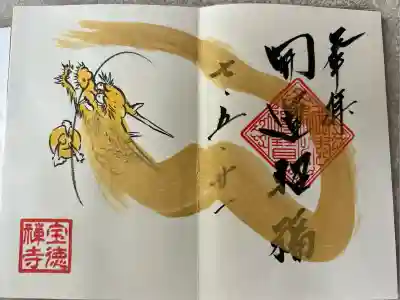 奉拝
開運招福
七・五・廿
宝徳
禅寺